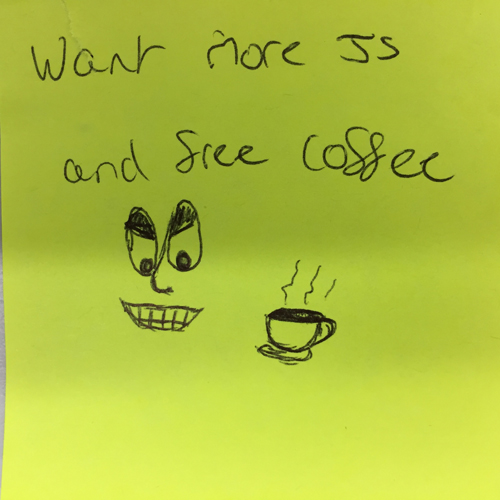 Want more JS
and free coffee